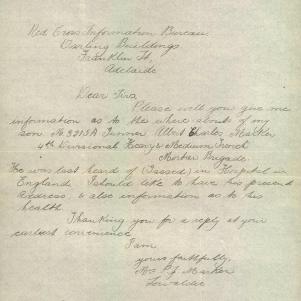 Red Cross Information Bureau
Darling Buildings
Franklin St,
Adelaide
Dear Sirs
Please will you give me
information as to the where abouts of my
son No 3215A Gunner Albert Charles Marker
4th Divisional Heavy & Medium Trench
Mortar Brigade.
He was last heard of (Gassed) in Hospital in
England. I should like to have his present
address, & also information as to his
health
Thanking you for a reply at your
earliest convenience
I am
yours faithfully,
Mrs P. J. Marker
Lowaldie